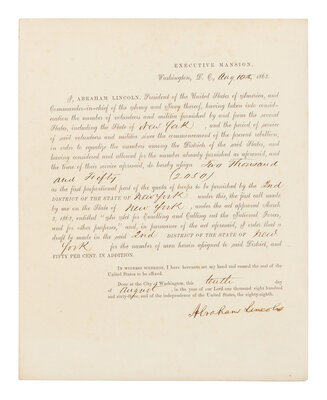 EXECUTIVE MANSION,
Washington, D. C, Aug 10th, 1863.
I, ABRAHAM LINCOLN, President of the United States of America, and
Commander-in-chief of the Army and Navy thereof, having taken into consid-
eration the number of volunteers and militia furnished by and from the several
States, including the State of New York, and the period of service
of said volunteers and militia since the commencement of the present rebellion,
in order to equalize the numbers among the Districts of the said States, and
having considered and allowed for the number already furnished as aforesaid, and
the time of their service aforesaid, do hereby assign Two thousand
and Fifty (2050)
as the first proportional part of the quota of troops to be furnished by the 2nd
DISTRICT OF THE STATE OF New York under this, the first call made
by me on the State of New York, under the act approved March
3, 1863, entitled "An Act for Enrolling and Calling out the National Forces,
and for other purposes," and, in pursuance of the act aforesaid, I order that a
draft be made in the said 2nd DISTRICT OF THE STATE OF New
York for the number of men herein assigned to said District, and
FIFTY PER CENT. IN ADDITION.
IN WITNESS WHEREOF, I have hereunto set my hand and caused the seal of the
United States to be affixed.
Done at the City of Washington, this tenth day
of August, in the year of our Lord one thousand eight hundred
and sixty-three, and of the independence of the United States, the eighty-eighth.
Abraham Lincoln